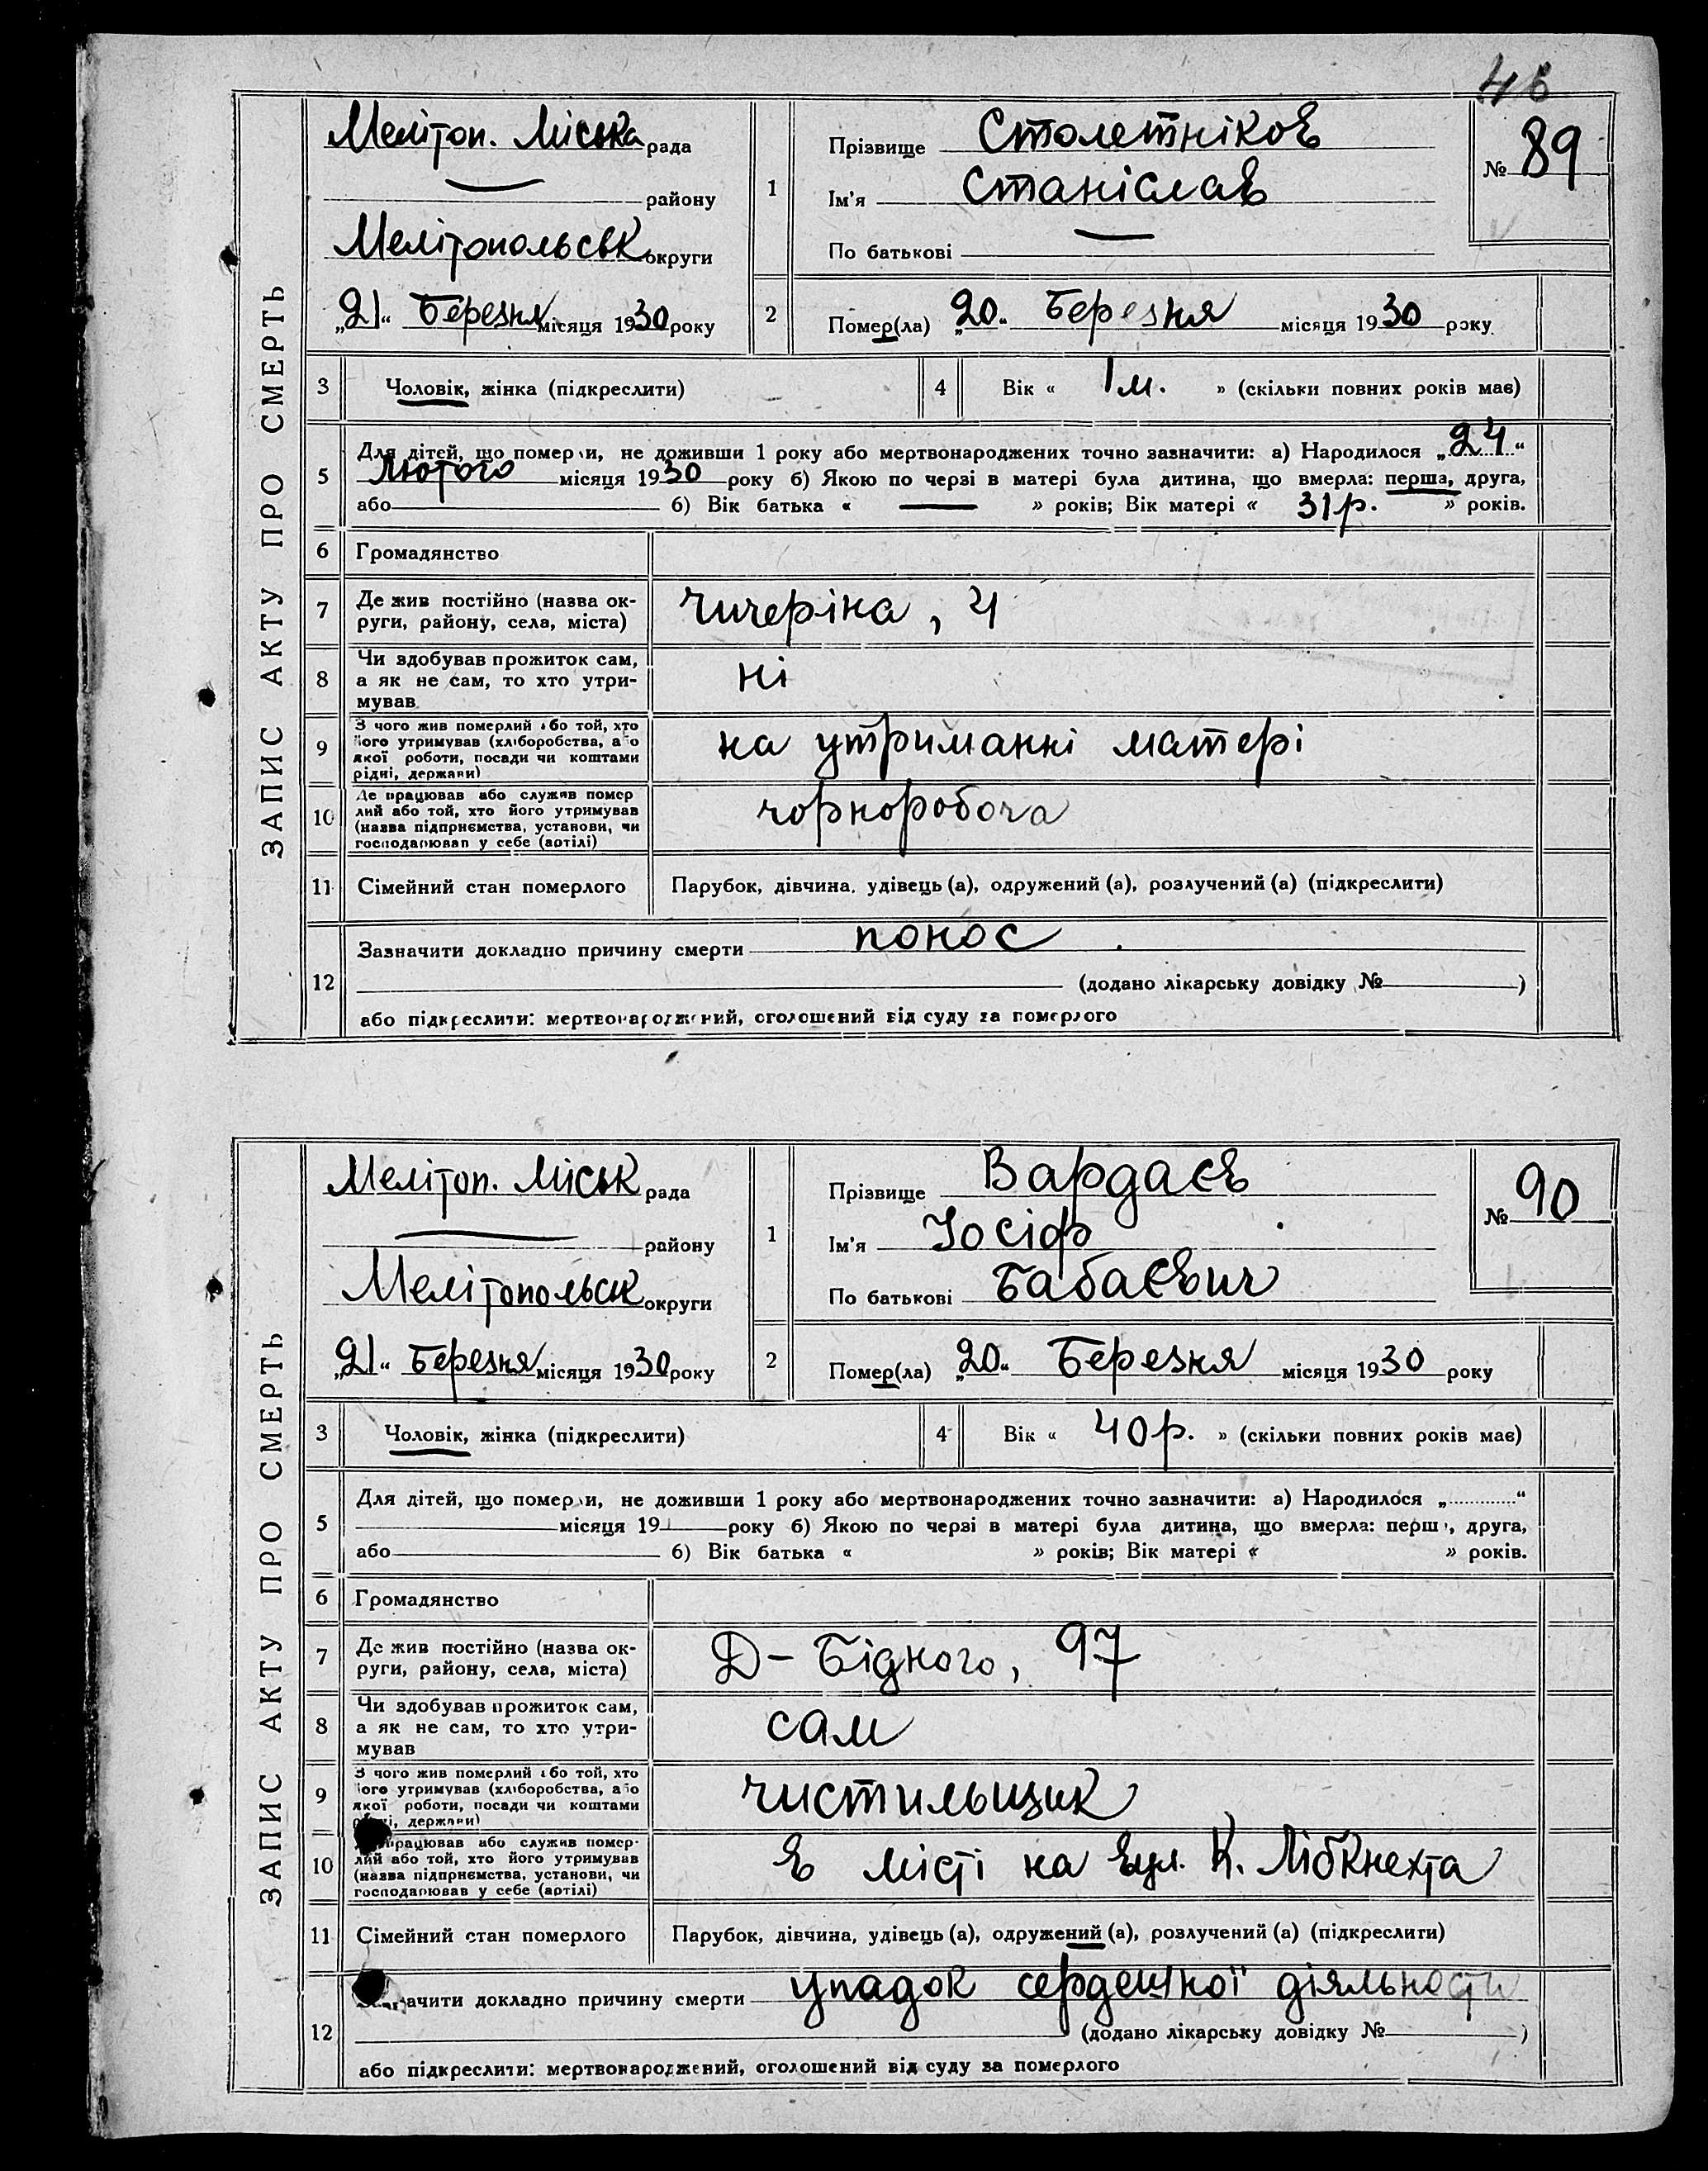 46
ЗАПИС АКТУ ПРО СМЕРТЬ
Мелітоп. Міська рада
району
Мелітопольськ округи
„21“ Березня місяця 1930 року
1
Прізвище Столетніков
Ім'я Станіслав
По батькові —
№ 89
2
Помер(ла) „20“ Березня місяця 1930 року
3 Чоловік, жінка (підкреслити)
4 Вік « 1 м. » (скільки повних років має)
5
Для дітей, що померли, не доживши 1 року або мертвонароджених точно зазначити: а) Народилося „24“
Лютого місяця 1930 року б) Якою по черзі в матері була дитина, що вмерла: перша, друга,
або б) Вік батька « — » років; Вік матері « 31 р. » років.
6 Громадянство
7 Де жив постійно (назва ок-
руги, району, села, міста)
Чичеріна, 4
8 Чи здобував прожиток сам,
а як не сам, то хто утри-
мував
ні
9 З чого жив померлий або той, хто
його утримував (хліборобства, або
якої роботи, посади чи коштами
рідні, держави)
на утриманні матері
10 Де працював або служив помер
лий або той, хто його утримував
(назва підприємства, установи, чи
господарював у себе (артілі)
чорноробоча
11 Сімейний стан померлого Парубок, дівчина, удівець (а), одружений (а), розлучений (а) (підкреслити)
12
Зазначити докладно причину смерти понос
(додано лікарську довідку № )
або підкреслити: мертвонароджений, оголошений від суду за померлого
ЗАПИС АКТУ ПРО СМЕРТЬ
Мелітоп. Міськ рада
району
Мелітопольськ округи
„21“ Березня місяця 1930 року
1
Прізвище Вардаєв
Ім'я Іосіф
По батькові Бабаєвич
№ 90
2
Помер(ла) „20“ Березня місяця 1930 року
3 Чоловік, жінка (підкреслити)
4 Вік « 40 р. » (скільки повних років має)
5
Для дітей, що померли, не доживши 1 року або мертвонароджених точно зазначити: а) Народилося „ “
місяця 19 року б) Якою по черзі в матері була дитина, що вмерла: перша, друга,
або б) Вік батька « » років; Вік матері « » років.
6 Громадянство
7 Де жив постійно (назва ок-
руги, району, села, міста)
Д-Бідного, 97
8 Чи здобував прожиток сам,
а як не сам, то хто утри-
мував
сам
9 З чого жив померлий або той, хто
його утримував (хліборобства, або
якої роботи, посади чи коштами
рідні, держави)
чистильщик
10 працював або служив помер-
лий або той, хто його утримував
(назва підприємства, установи, чи
господарював у себе (артілі)
в місті на вул. К. Лібкнехта
11 Сімейний стан померлого Парубок, дівчина, удівець (а), одружений (а), розлучений (а) (підкреслити)
12
Зазначити докладно причину смерти упадок сердешної діяльности
(додано лікарську довідку № )
або підкреслити: мертвонароджений, оголошений від суду за померлого